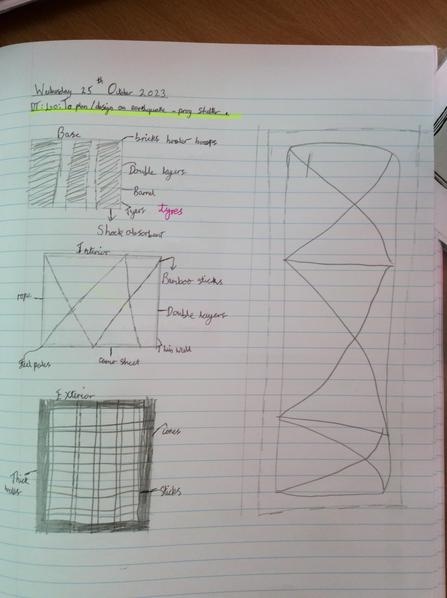 Wednesday 25th October 2023.
DT: L.O: To plan/design an earthquake - proof shelter.
Base
bricks hooler hoops
Double layers
Barrel
Tyers tyres
Shock absorbant
Interior
Bamboo sticks
rope
Double layers
Thin wall
Steel poles
sheet
Exterior
canes
Thick
sticks